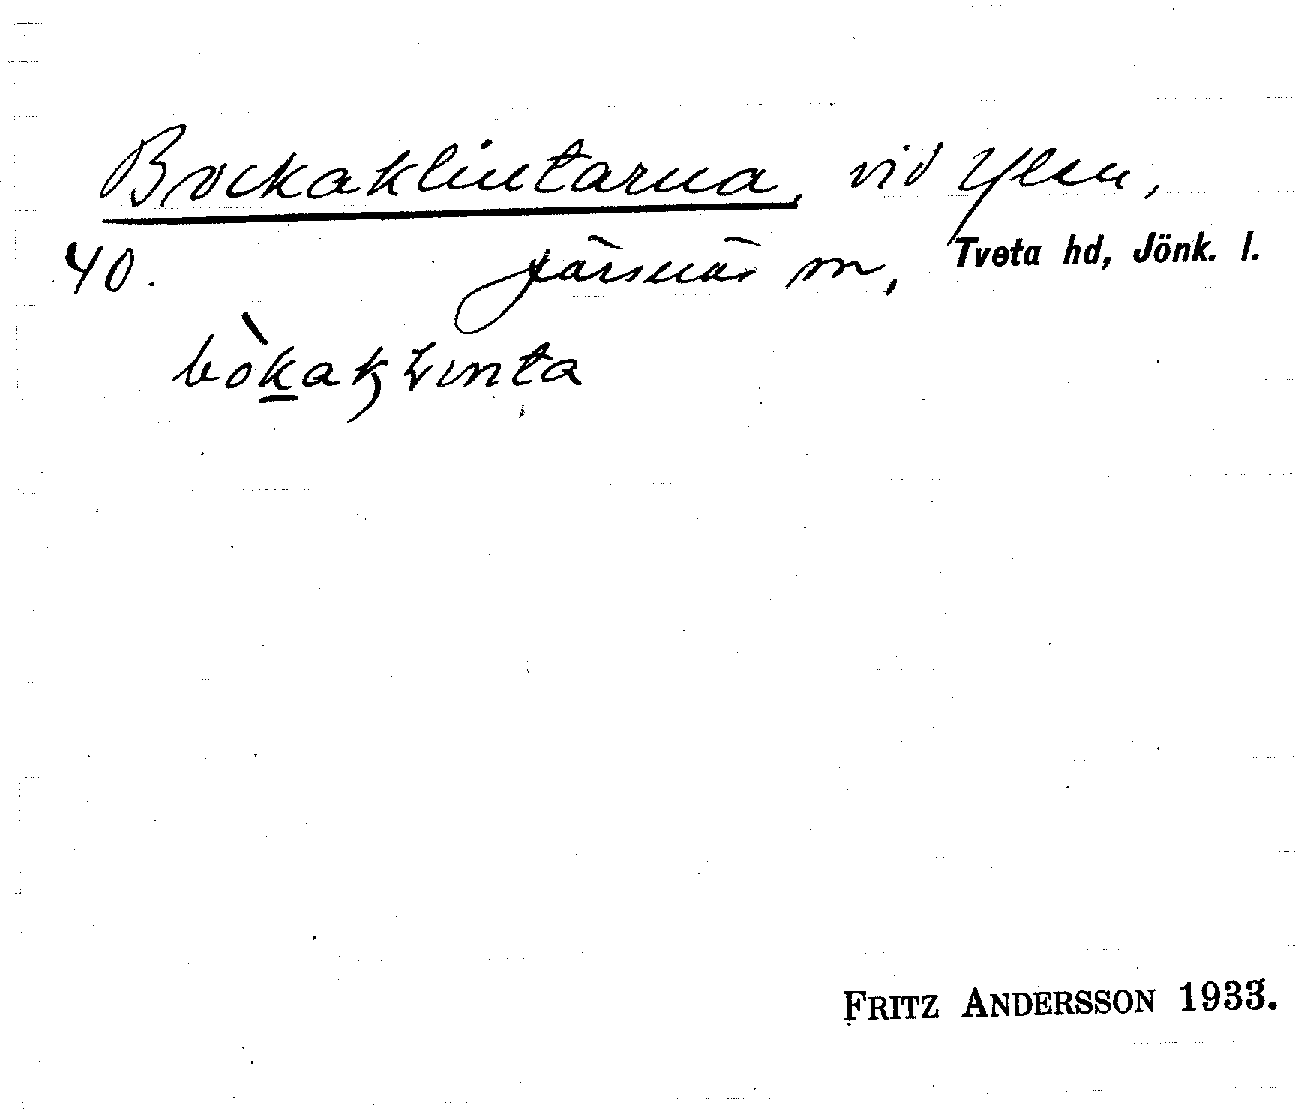 Bockaklintarna, vid Ylen,
40. Järsnäs sn, Tveta hd, Jönk. l.
bòkakḷinta
FRITZ ANDERSSON 1933.